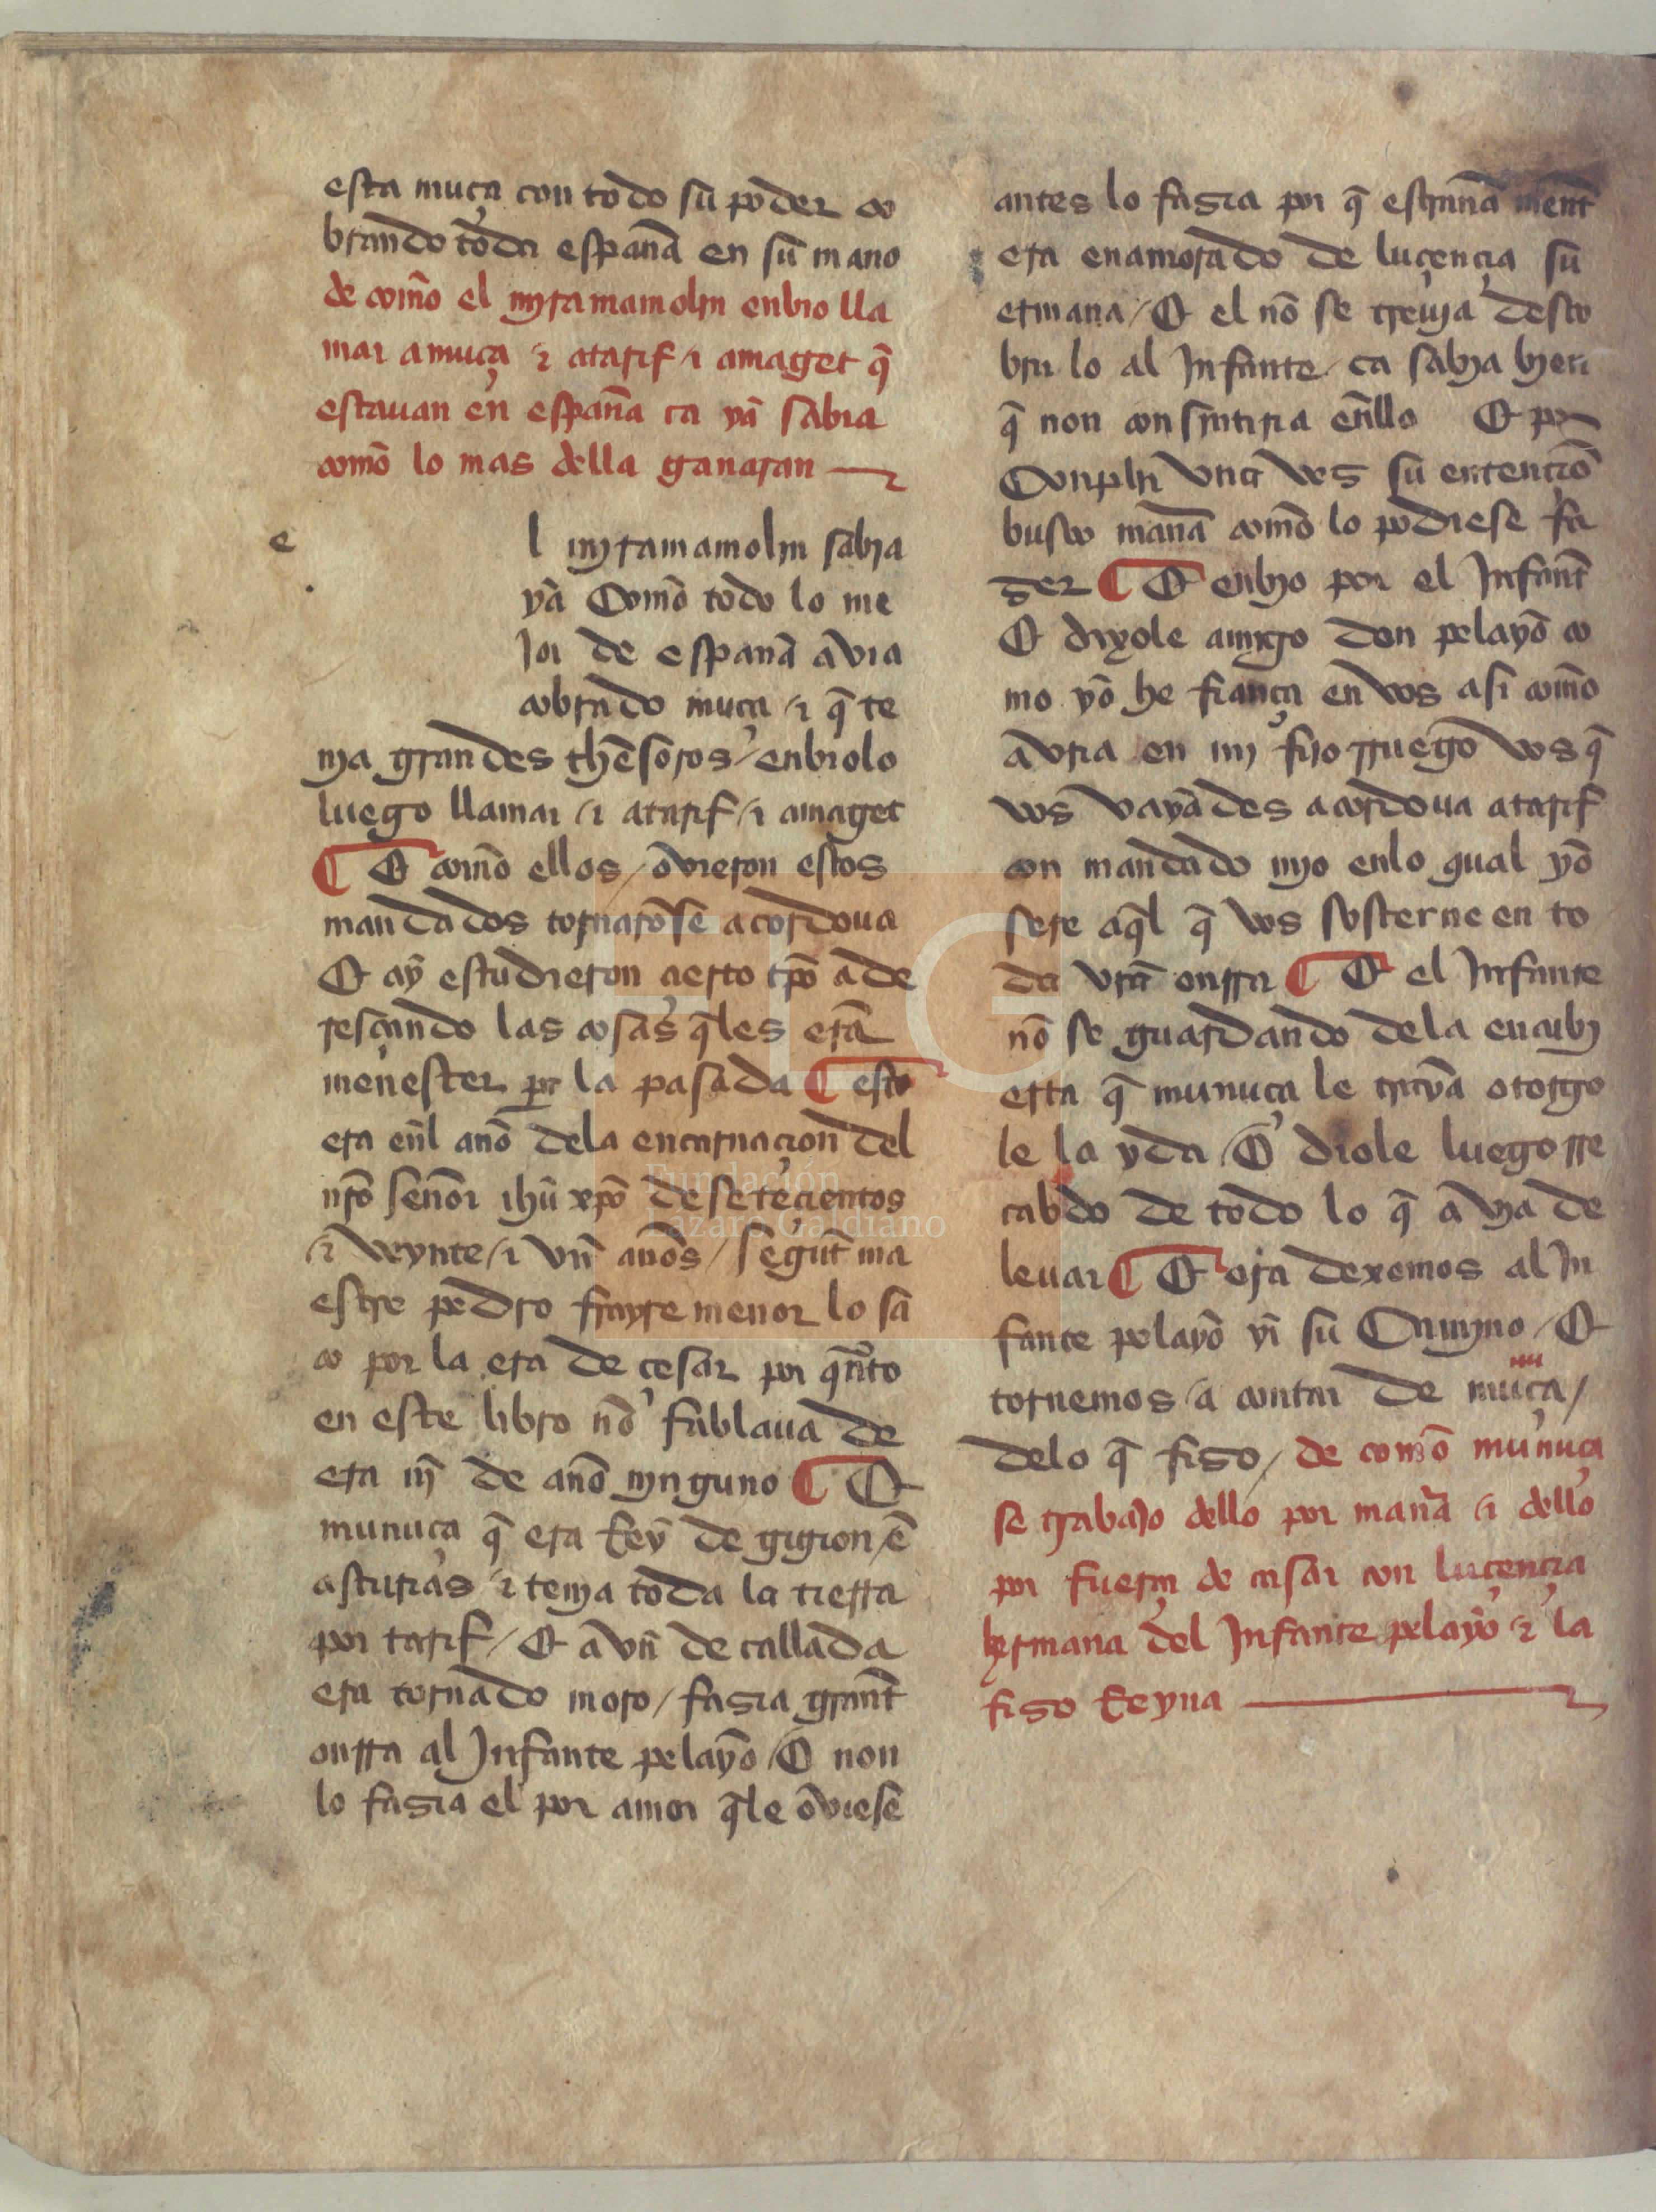 esta muça con todo su poder co
brando toda españa en su mano
de commo el myramamolin enbio lla
mar a muça & a tarif & a maget q̃
estauan en españa ca ya sabia
commo lo mas della ganaran
e
l myramamolin sabia
ya Commo todo lo me
jor de españa auia
cobrado muça & q̃ te
nia grandes thesoros / enbiolo
luego llamar & a tarif & a maget
¶ E commo ellos / ouieron estos
mandados tornarõse a cordoua
E ay estudieron cierto tp̃o ade
resçando las cosas q̃les erã
menester por la pasada ¶ esto
era enl año dela encarnaçion del
nr̃o señor ihũ xp̃o de seteçientos
& veynte & vn años / segũt ma
estre pedro frayre menor lo sa
co por la era de çesar por q̃nto
en este libro nõ fablaua de
era nĩ de año nynguno ¶ E
munuça q̃ era Rey de gigion / ẽ
asturias & tenia toda la tierra
por tarif / E avn de callada
era tornado moro / fasia grant
onrra al Infante pelayo / E non
lo fasia el por amor q̃le ouiese
antes lo fasia por q̃ estraña ment
era enamorado de luçençia su
ermana / E el nõ se treuja desco
brir lo al Infante / ca sabia bien
q̃ non consintiria enllo E por
Conplir vna ves su entençiõ
busco maña commo lo podiese fa
zer ¶ E enbio por el Infant
E dixole amigo don pelayo co
mo yo he fiança en vos asi commo
auria en mj fijo rruego vos q̃
vos vayades a cordoua a tarif
con mandado mjo enlo qual yo
sere aq̃l q̃ vos sosterne en to
da vr̃a onrra ¶ E el Infante
nõ se guardando dela encubi
erta q̃ munuça le traya otorgo
le la yda / E diole luego rre
cabdo de todo lo q̃ auia de
leuar ¶ E ora dexemos al In
fante pelayo yr su Camjno / E
tornemos a contar de muça /
nu
delo q̃ fiso / de commo munuça
se trabajo dello por maña & dello
por fuerça de casar con luçençia
hermana del Infante pelayo & la
fiso Reyna
Fundación
Lázaro Galdiano